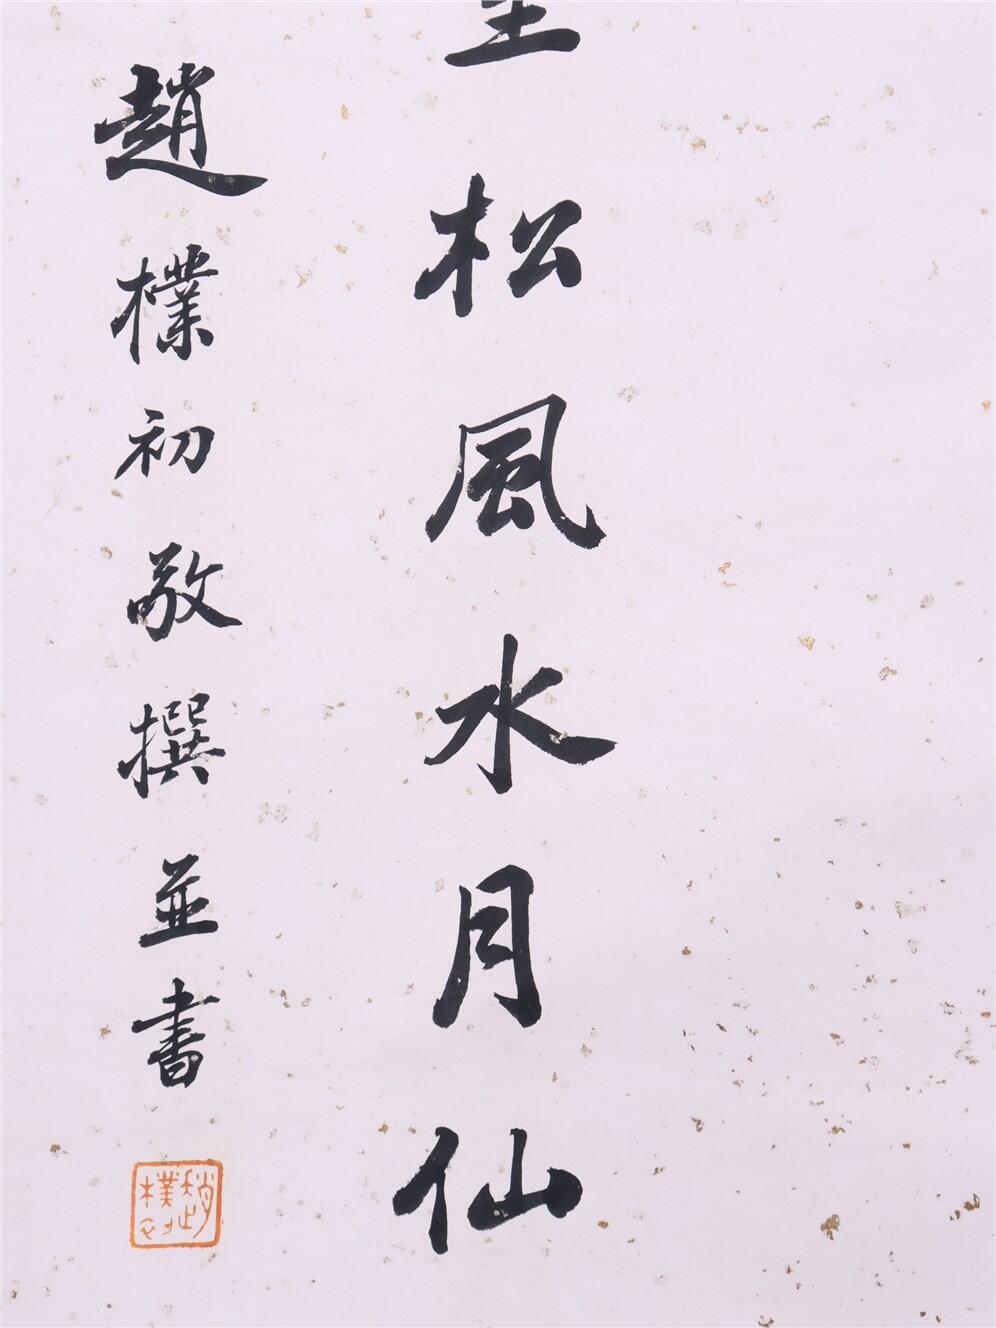 松風水月仙
趙樸初敬撰並書
趙樸初